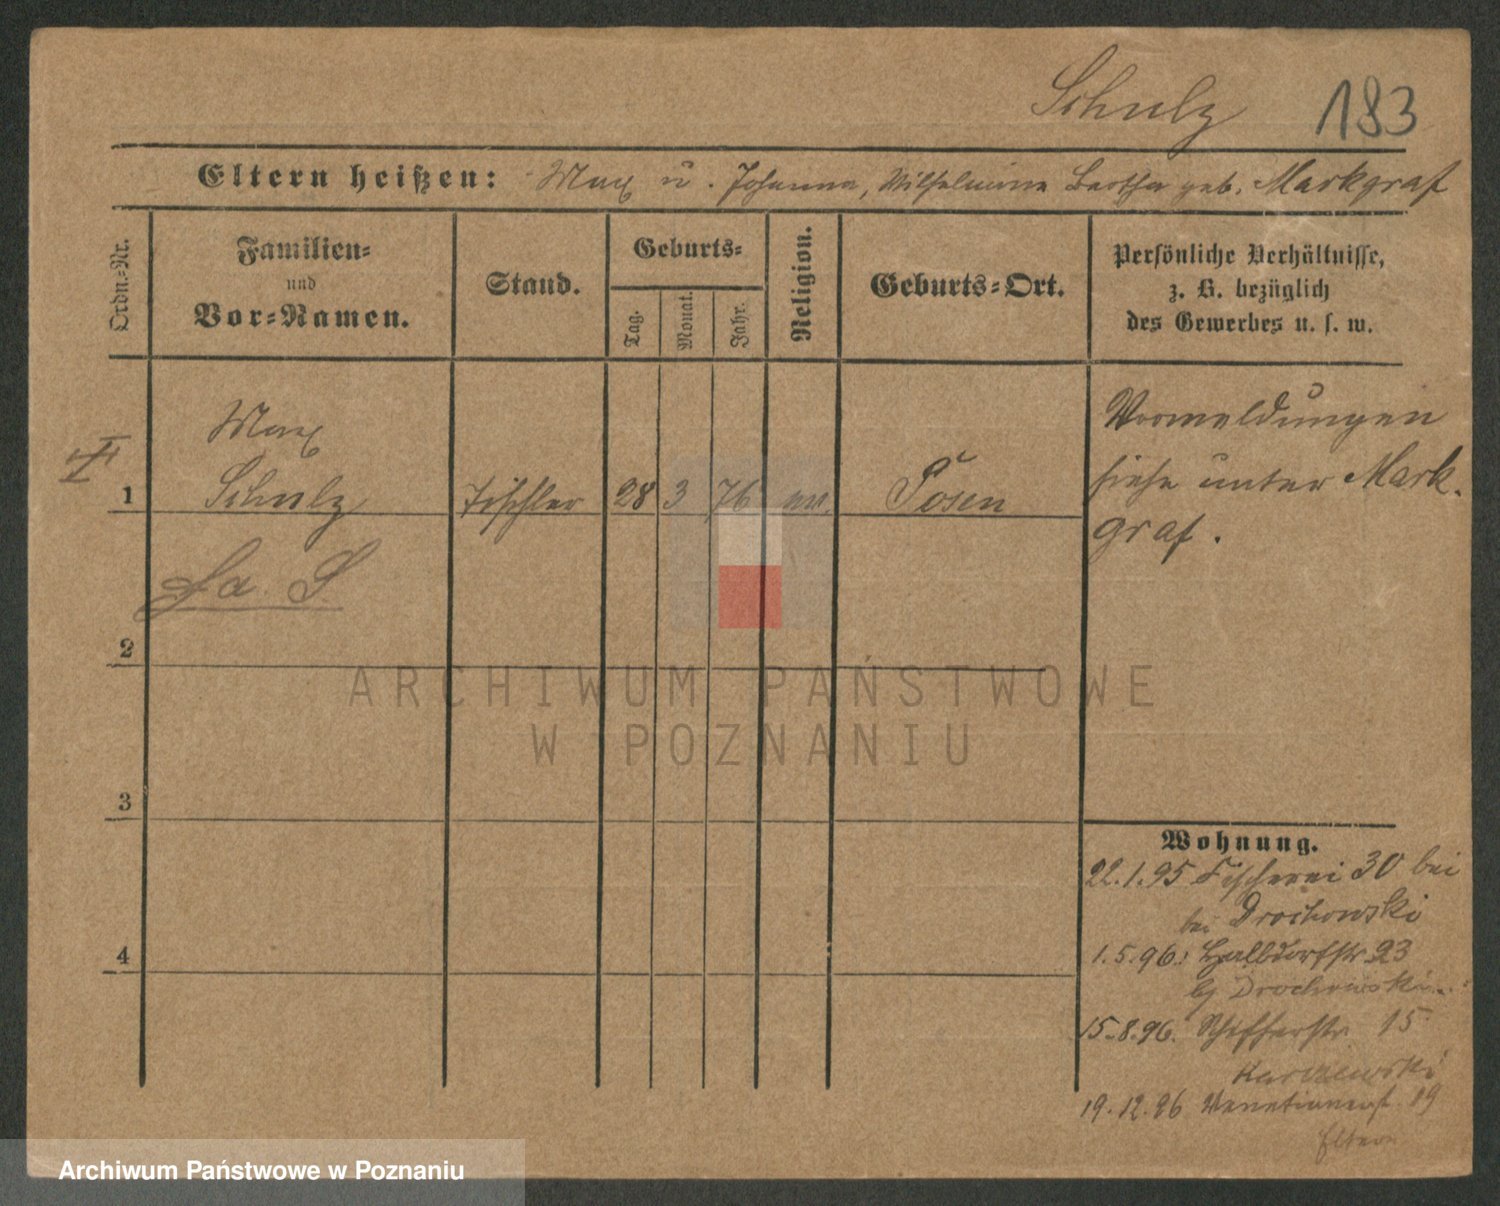 Schulz 183
Eltern heißen: Max u. Johanna, Wilhelmine Bertha geb. Markgraf
Ordn.-Nr.
Familien-
und
Vor-Namen.
Stand.
Geburts-
Tag.
Monat.
Jahr.
Religion.
Geburts-Ort.
Persönliche Verhältnisse,
z. B. bezüglich
des Gewerbes u. s. w.
Max
1 Schulz Tischler 28 3 76 ev. Posen
Vormeldungen
siehe unter Mark-
graf.
2
3
4
Wohnung.
22.1.95 Fischerei 30 bei
bei Drochowski
1.5.96: Halbdorfstr. 23
bei Drochowski
15.8.96. Schifferstr. 15
Karczewski
19.12.96 Venetianerst. 19
Eltern
ARCHIWUM PAŃSTWOWE
W POZNANIU
Archiwum Państwowe w Poznaniu